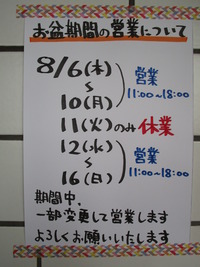 お盆期間の営業について
8/6(木)
〜
10(月)
営業
11:00~18:00
11(火)のみ休業
12(水)
〜
16(日)
営業
11:00~18:00
期間中、
一部変更して営業します
よろしくお願いいたします